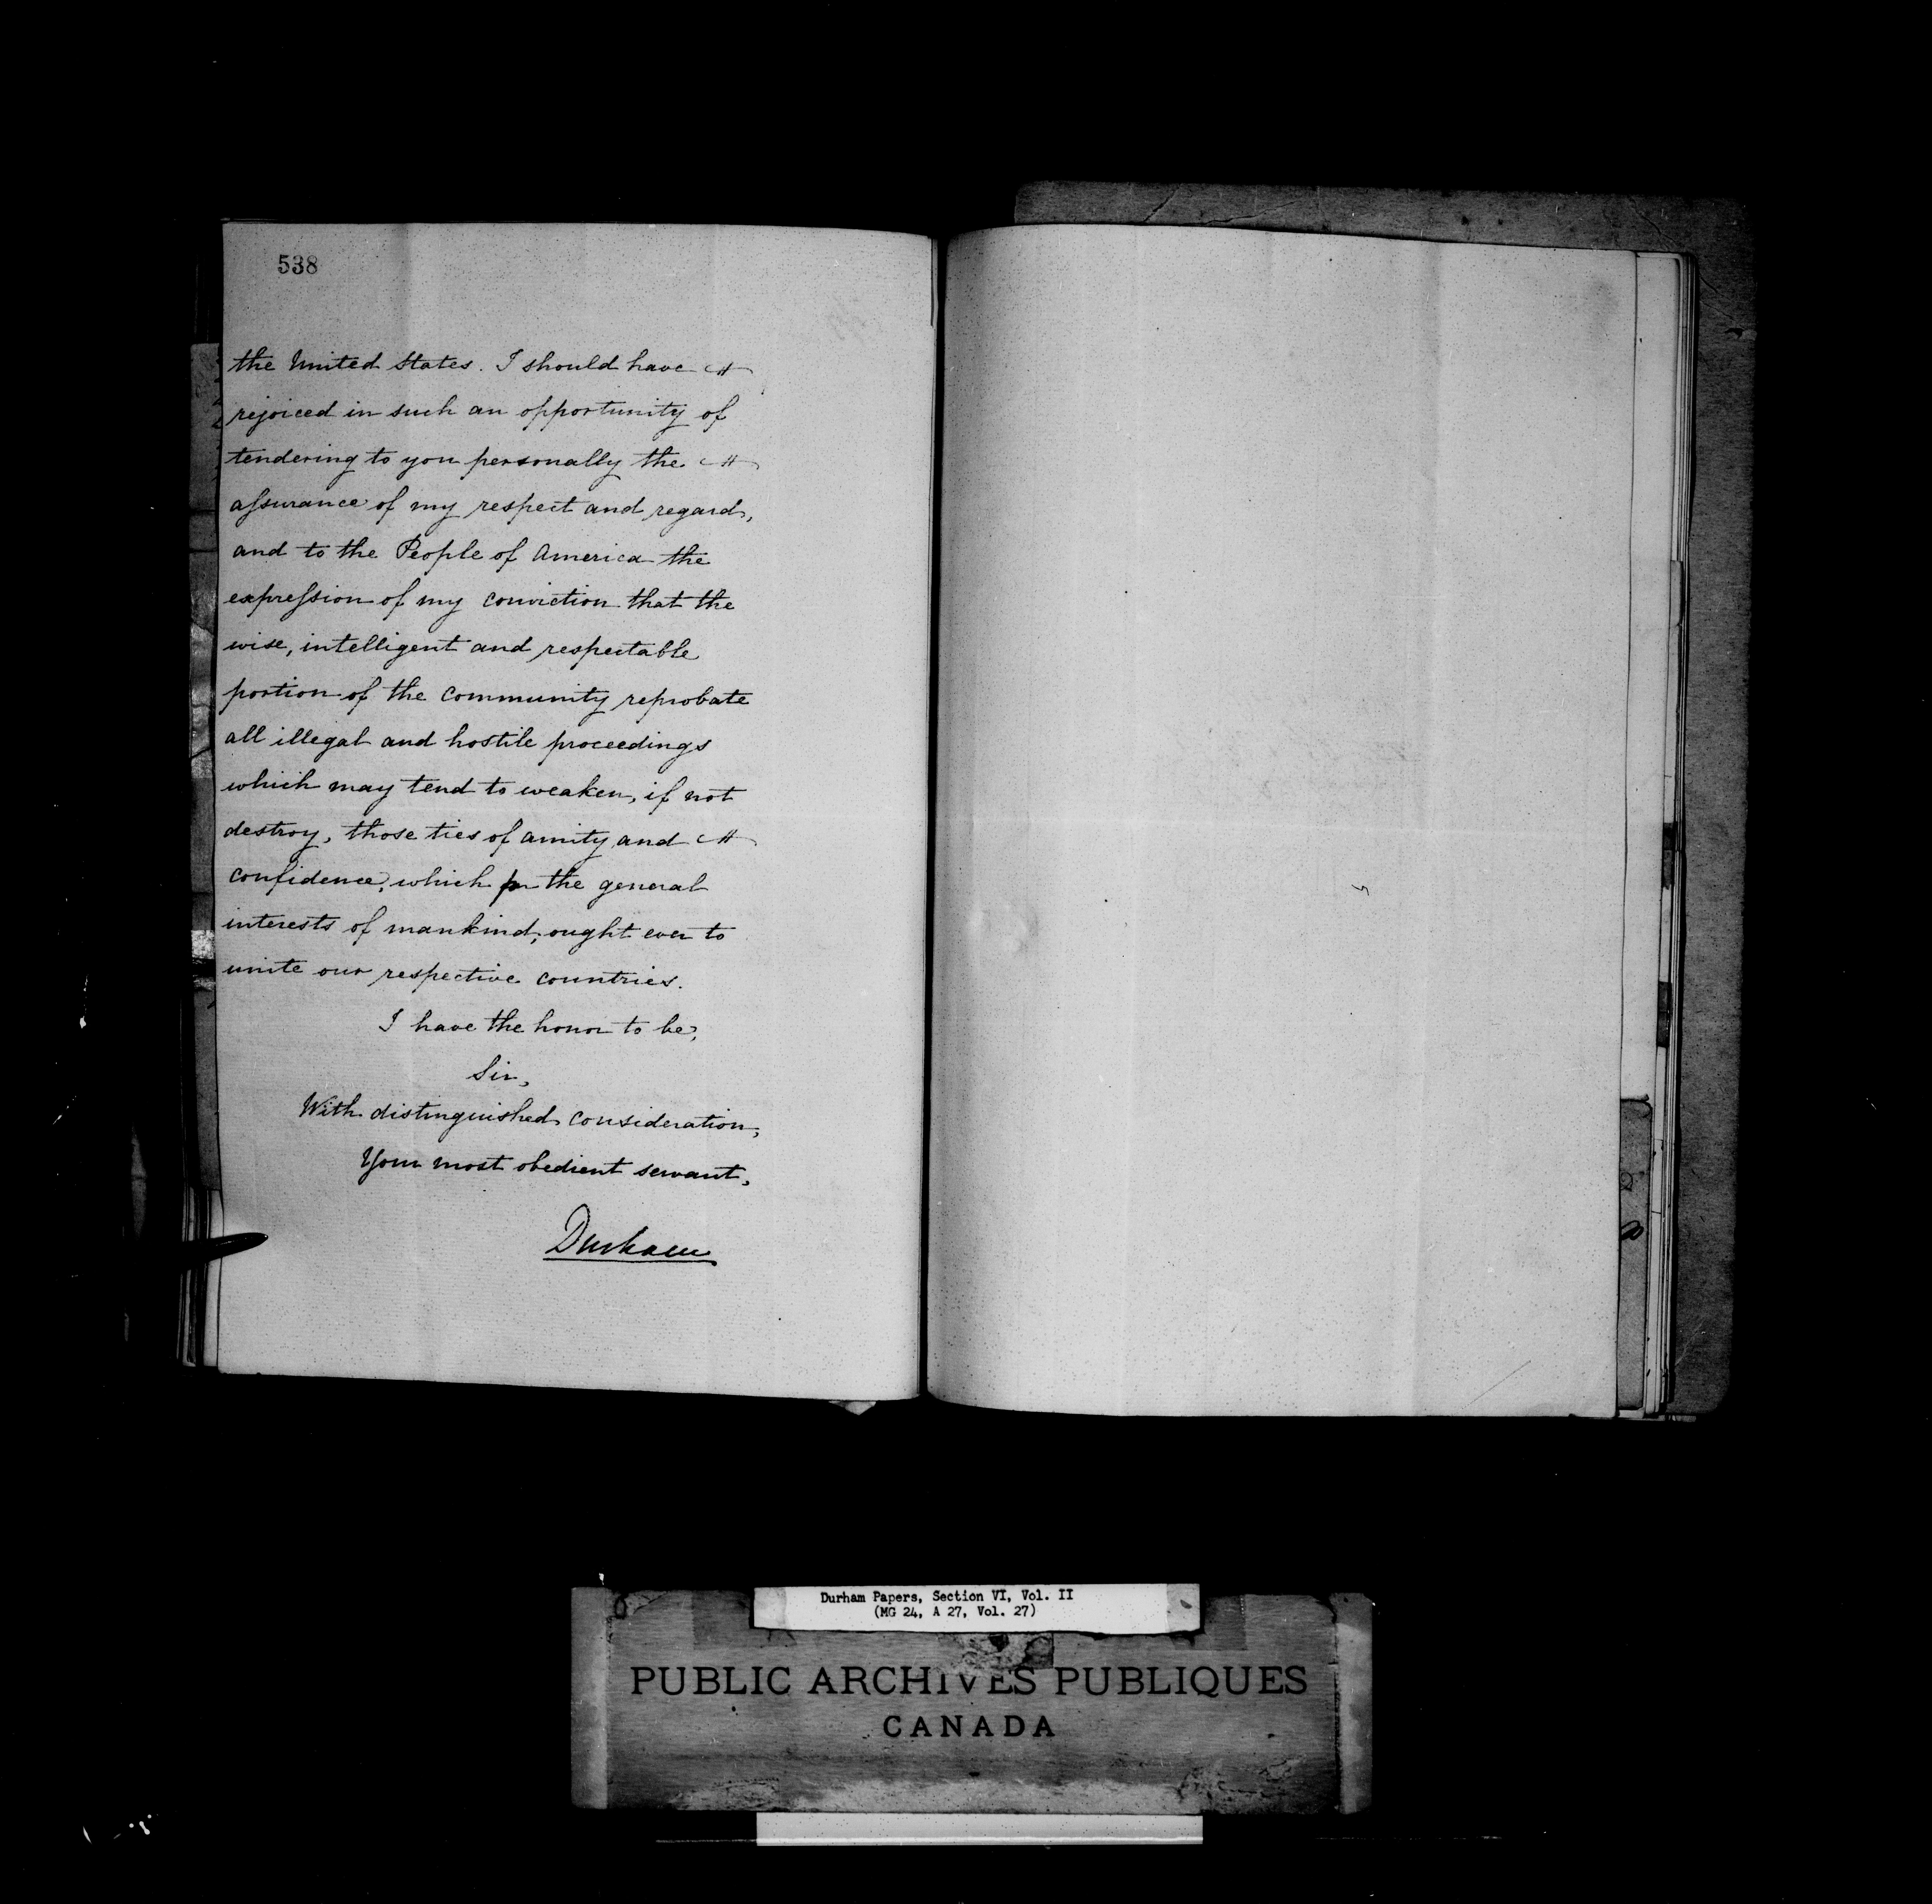 538
the United States. I should have
rejoiced in such an opportunity of
tendering to you personally the
assurance of my respect and regard,
and to the People of America the
expression of my conviction that the
wise, intelligent and respectable
portion of the community reprobate
all illegal and hostile proceedings
which may tend to weaken, if not
destroy, those ties of amity and
confidence, which for the general
interests of mankind, ought ever to
unite our respective countries.
I have the honor to be,
Sir,
With distinguished consideration,
Your most obedient servant,
Durham
Durham Papers, Section VI, Vol. II
(MG 24, A 27, Vol. 27)
PUBLIC ARCHIVES PUBLIQUES
CANADA